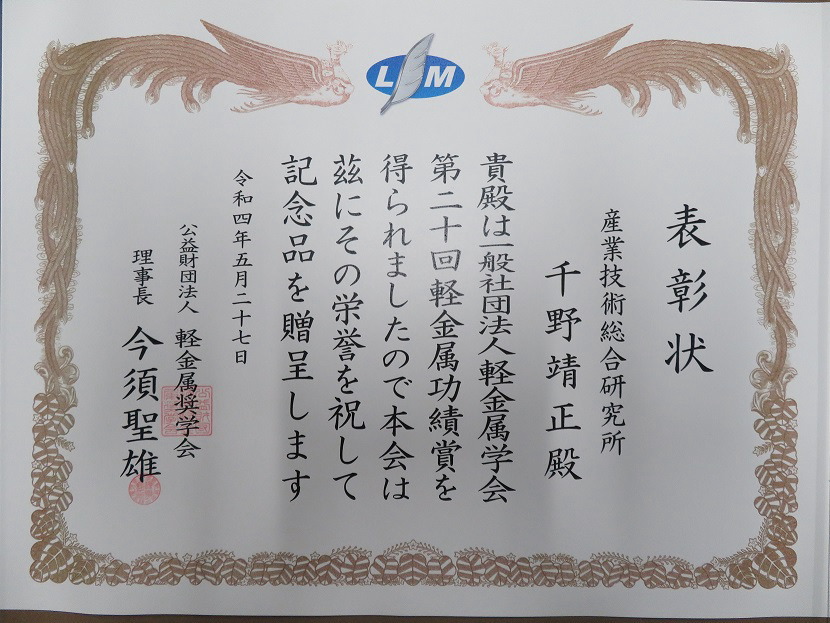 LM
表彰状
産業技術総合研究所
千野靖正殿
貴殿は一般社団法人軽金属学会
第二十回軽金属功績賞を
得られましたので本会は
茲にその栄誉を祝して
記念品を贈呈します
令和四年五月二十七日
公益財団法人 軽金属奨学会
理事長 今須聖雄